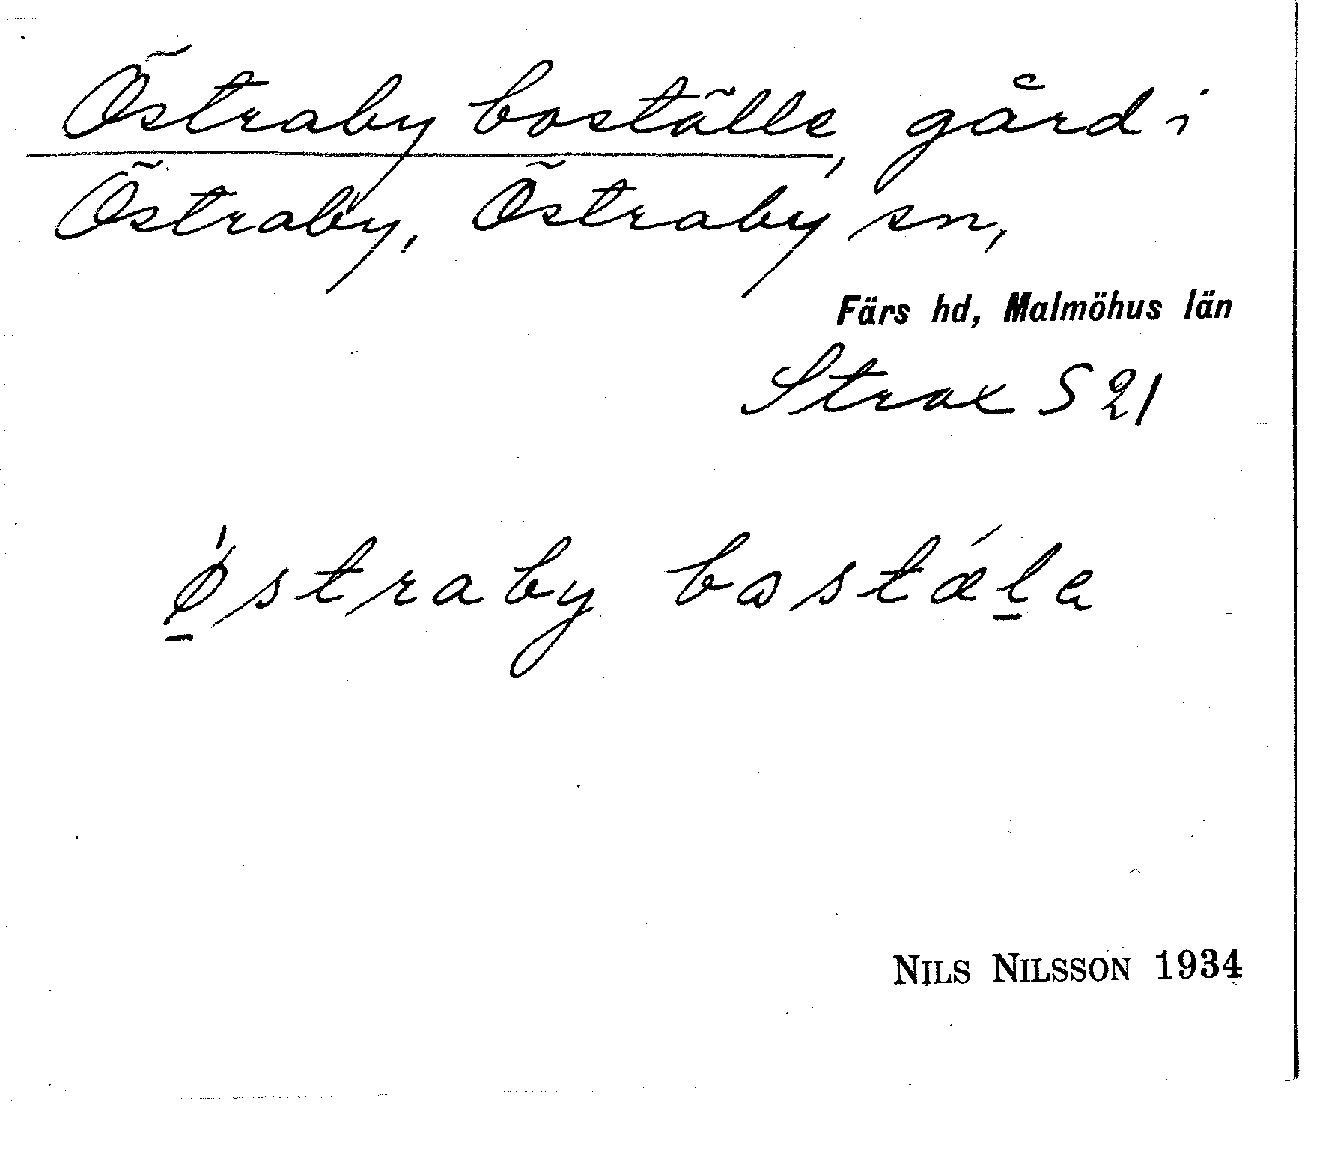 Östraby boställe, gård i
Östraby, Östraby sn,
Färs hd, Malmöhus län
Strax S 21
ǿ̱straby bostǽḻa
NILS NILSSON 1934